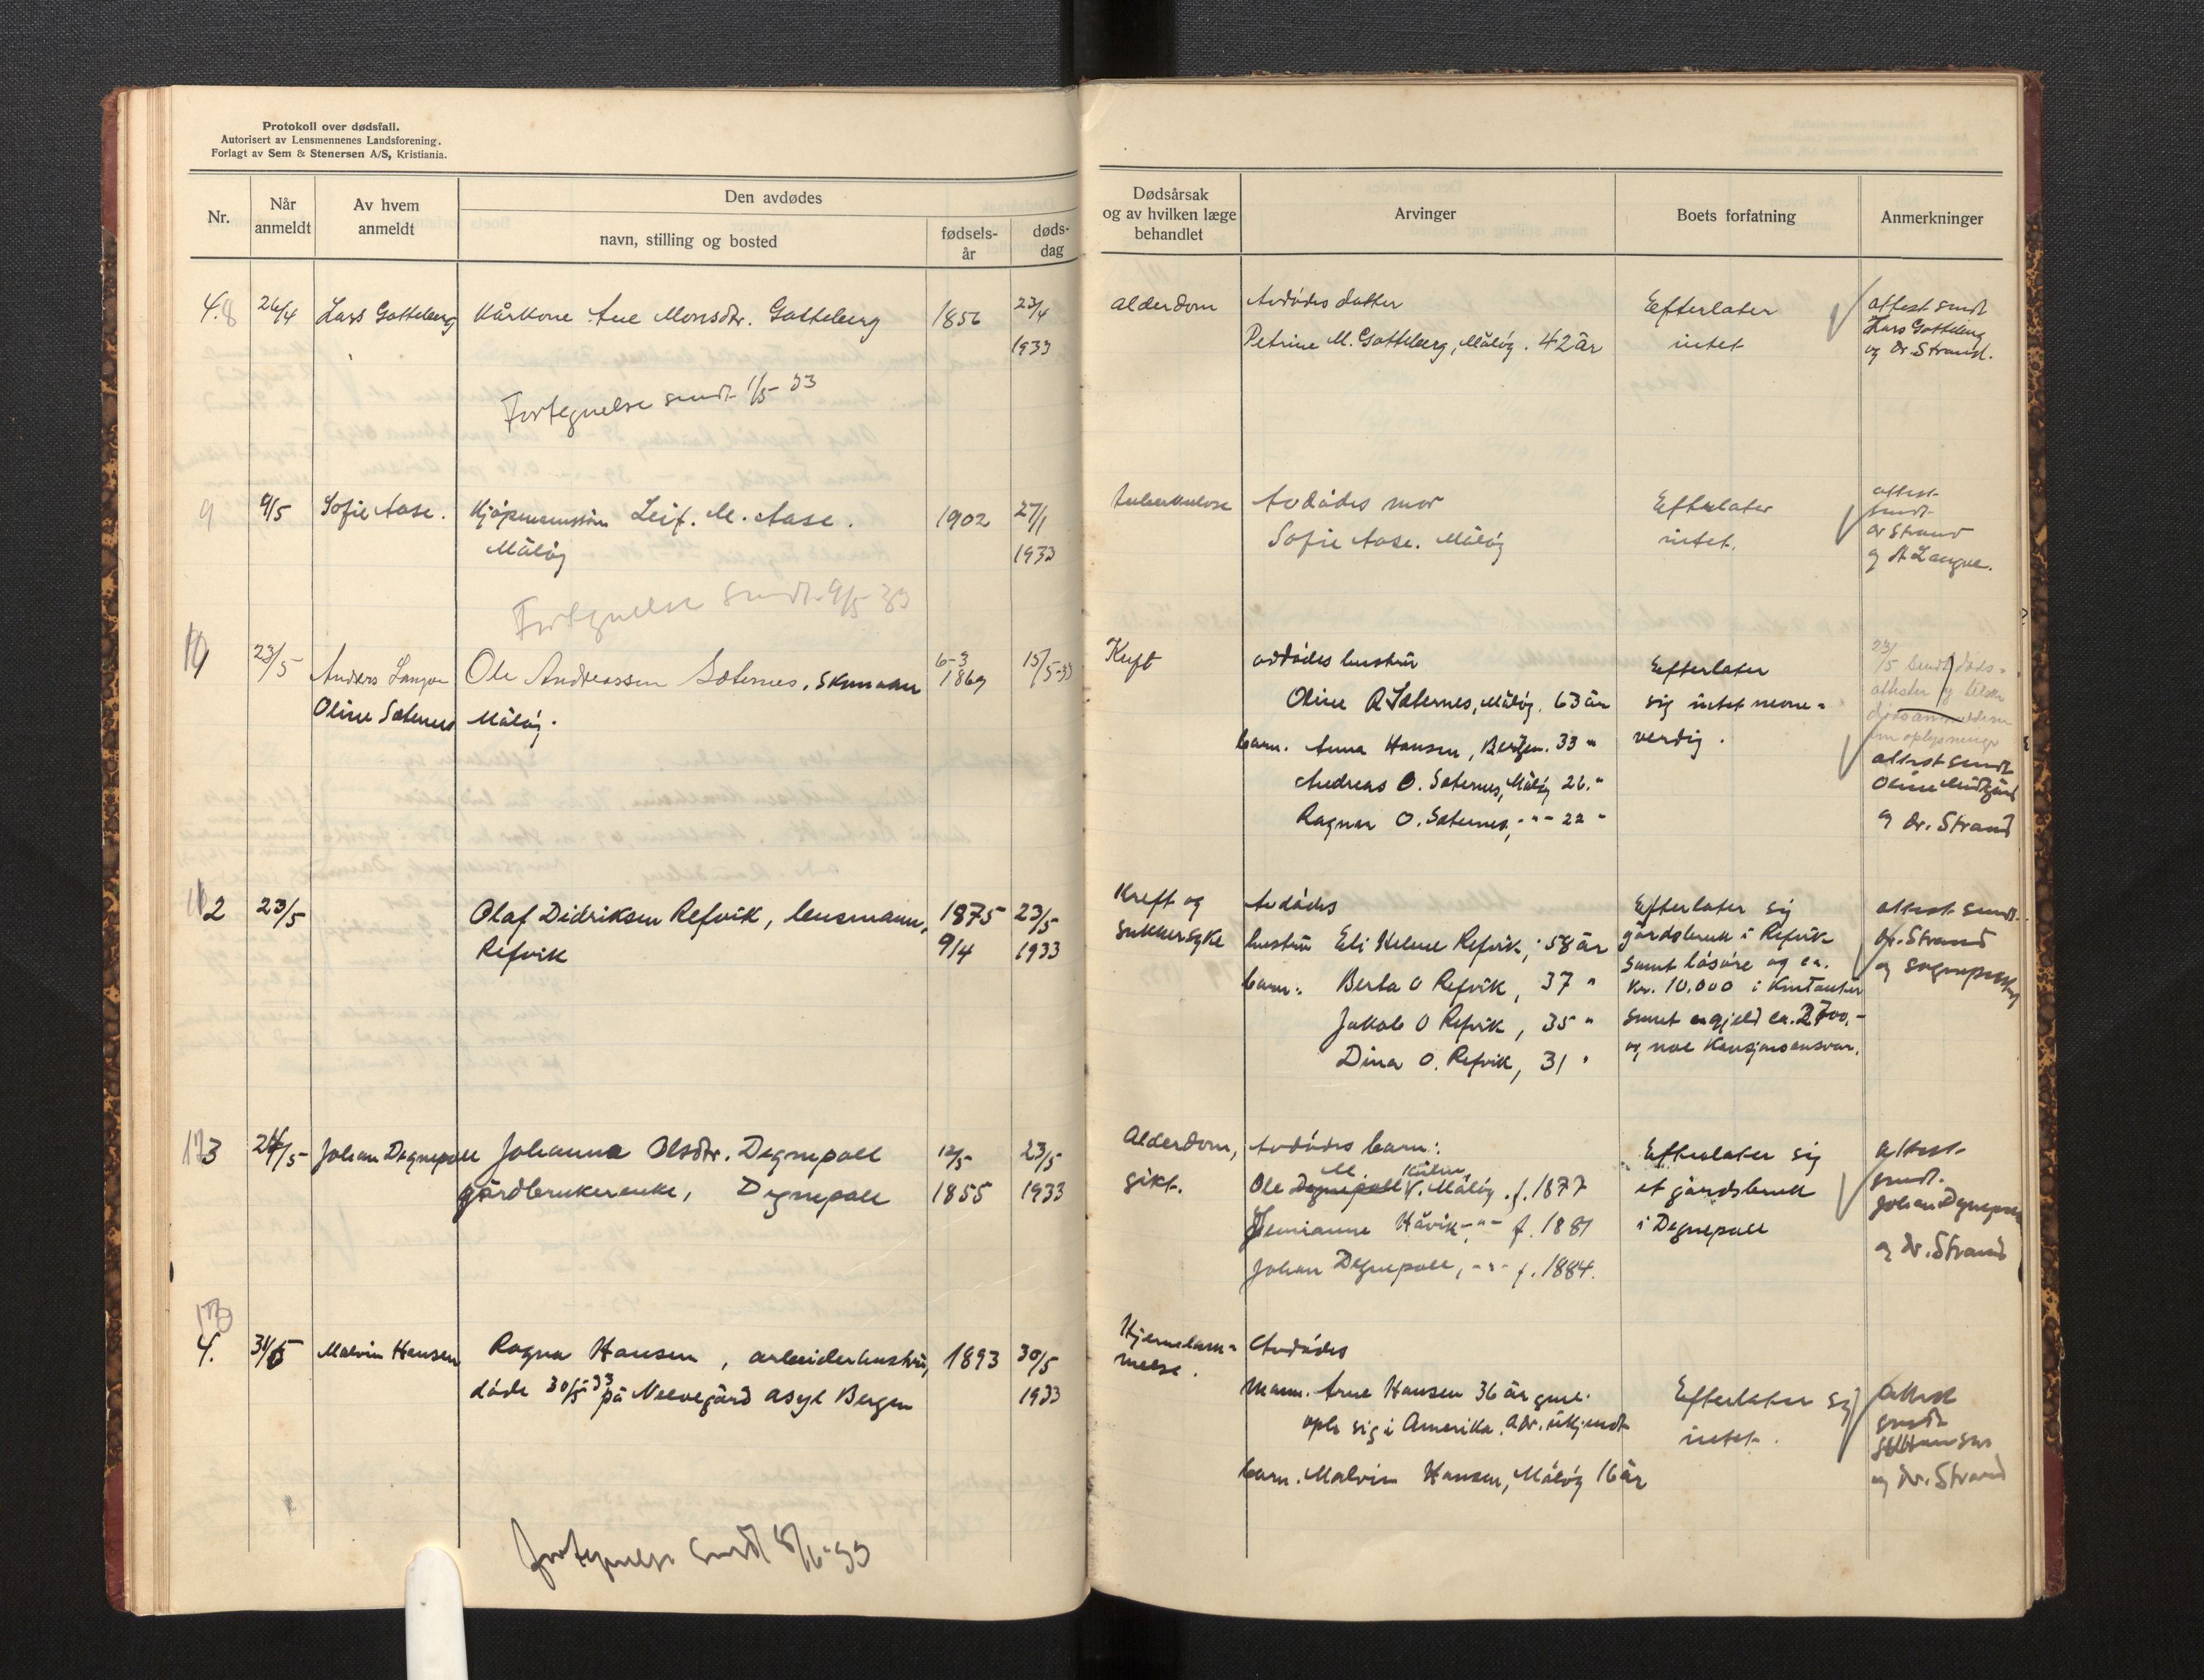 Protokoll over dødsfall.
Autorisert av Lensmennenes Landsforening.
Forlagt av Sem & Stenersen A/S, Kristiania.
Nr.
Når anmeldt
Av hvem anmeldt
Den avdødes
navn, stilling og bosted
fødselsår
dødsdag
Dødsårsak og av hvilken læge behandlet
Arvinger
Boets forfatning
Anmerkninger
4.8 26/4 Lars Gotteberg Kårkone Ane Monsdtr. Gotteberg 1856 23/4
1933
Fortegnelse sendt 1/5-33
Alderdom Avdødes datter
Petrine M. Gotteberg, Måløy. 42 år
Efterlater
intet
attest sendt
Lars Gotteberg
og Dr. Strand.
9 9/5 Sofie Aase. Kjøpmannssøn Leif. M. Aase. 1902 27/1
Måløy 1933
Fortegnelse sendt 9/5-33
tuberkulose Avdødes mor
Sofie Aase. Måløy
Efterlater
intet.
attest
sendt
dr Strand
og A Langøe.
23/5 Anders Langøe Ole Andreassen Sæternes, skumaker 6-3 1869 15/5-33
Oline Sæternes Måløy.
Kreft avdødes hustru
Oline A Sæternes, Måløy. 63 år
barn. Anna Hansen, Bergen. 33 "
Andreas O. Sæternes, Måløy 26. "
Ragnar O. Sæternes, -"- 22 "
Efterlater
sig intet neve-
verdig.
23/5 sendt døds-
attester og
attest sendt
Oline
og dr. Strand
2 23/5 Olaf Didriksen Refvik, lensmann, 1875 23/5
Refvik 9/4 1933
Kreft og
sukkersyke
Avdødes
hustru Eli Helene Refvik, 58 år
barn: Berta O Refvik, 37 "
Jakob O Refvik, 35 "
Dina O. Refvik, 31 "
Efterlater sig
gårdsbruk i Refvik
samt løsøre og ca.
kr. 10.000 i kontanter
samt gjeld ca. 2700,-
og noe kausjonsansvar.
attest sendt
dr. Strand
og sogneprest
3 24/5 Johan Degnepoll Johanna Olsdtr. Degnepoll 12/5 23/5
gårdbrukerenke, Degnepoll 1855 1933
Alderdom,
gikt.
Avdødes barn:
Ole Degnepoll V. Måløy. f. 1877
Jemianne Håvik -"- f. 1881
Johan Degnepoll, -"- f. 1884.
Efterlater sig
et gårdsbruk
i Degnepoll
attest
sendt.
Johan Degnepoll
og dr. Strand
4. 31/5 Malvin Hansen Ragna Hansen, arbeiderhustru, 1893 30/5
døde 30/5-33 på Neevegård asyl Bergen 1933
Hjernelam-
melse.
Avdødes
mann. Arne Hansen 36 år gml.
oph sig i Amerika. Adr. ukjendt
barn. Malvin Hansen, Måløy 16 år
Efterlater sig
intet.
attest
sendt
Hansen
og dr. Strand
Fortegnelse sendt